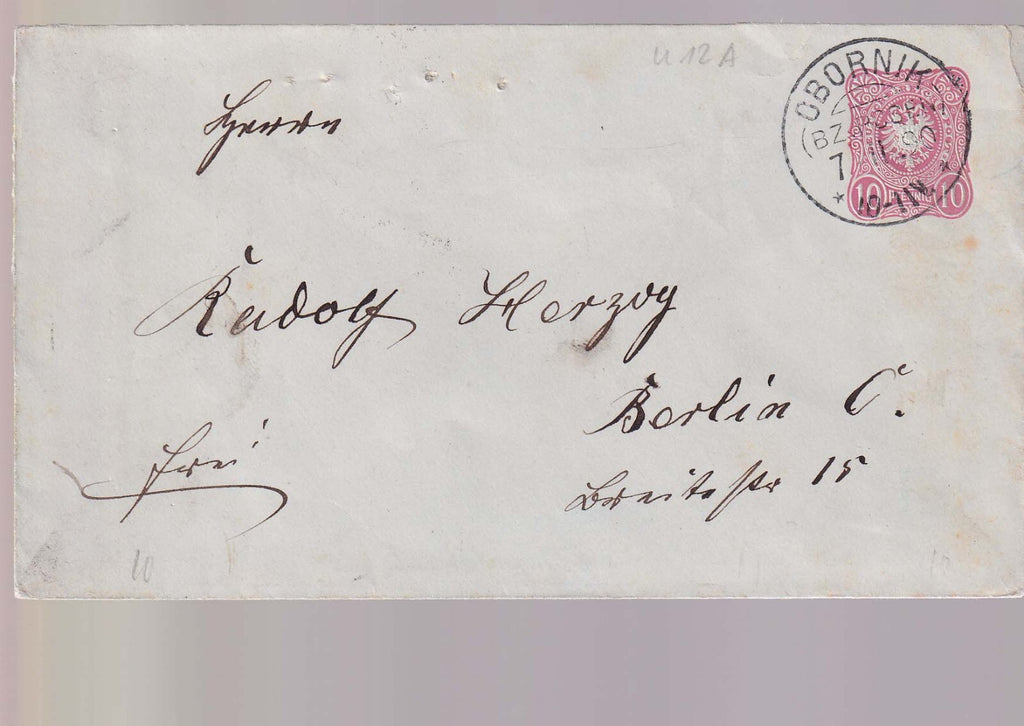 U 12 A
OBORNIK
7
10-11V.
10 PFENNIG 10
Herrn
Rudolf Herzog
Berlin C.
frei
Breitestr 15
10
10